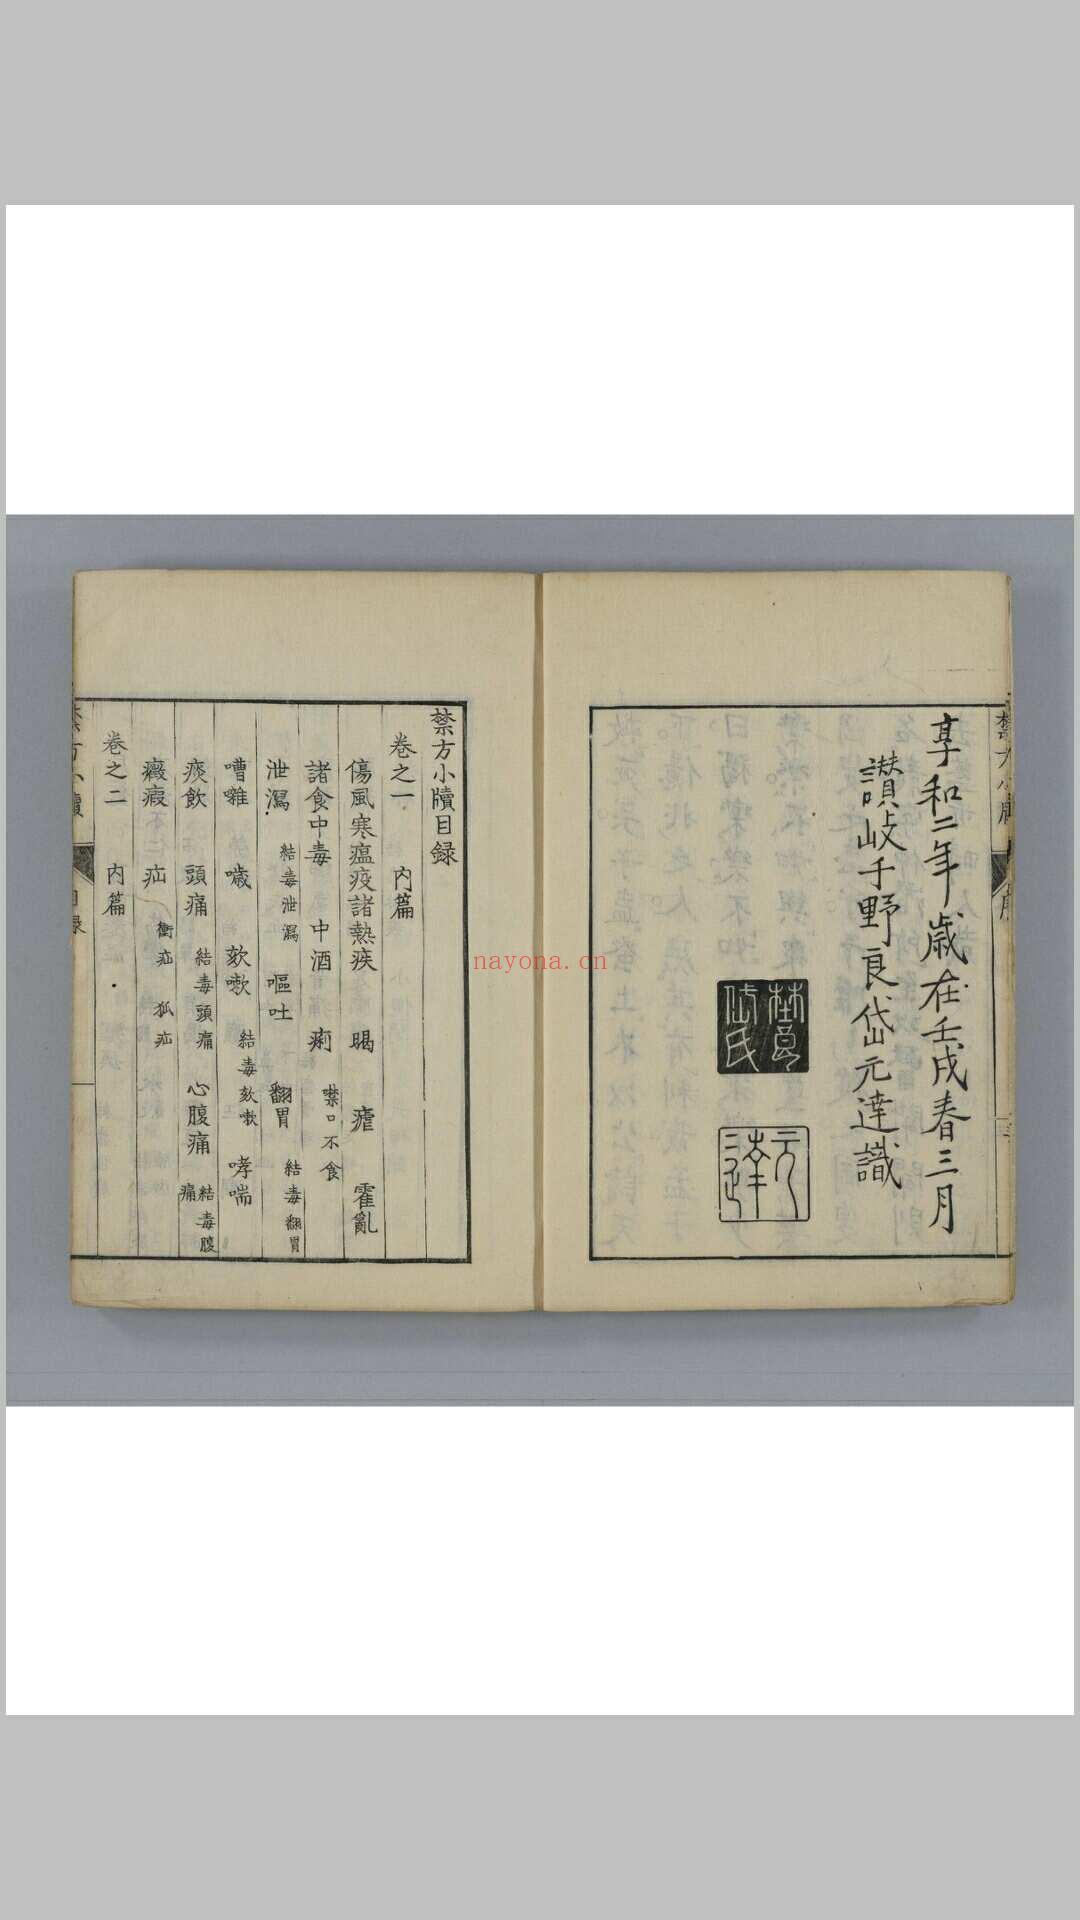 享和二年歳在壬戌春三月
讃岐千野良岱元達識
元達
禁方小牘目録
卷之一 内篇
傷風寒瘟疫諸熱疾 暍 瘧 霍亂
諸食中毒 中酒 痢 噤口不食
泄瀉 結毒泄瀉 嘔吐 翻胃 結毒翻胃
嘈囃 噦 欬嗽 結毒欬嗽 哮喘
痰飲 頭痛 結毒頭痛 心腹痛 結毒腹痛
癥瘕 疝 衝疝 狐疝
卷之二 内篇
nayona.cn